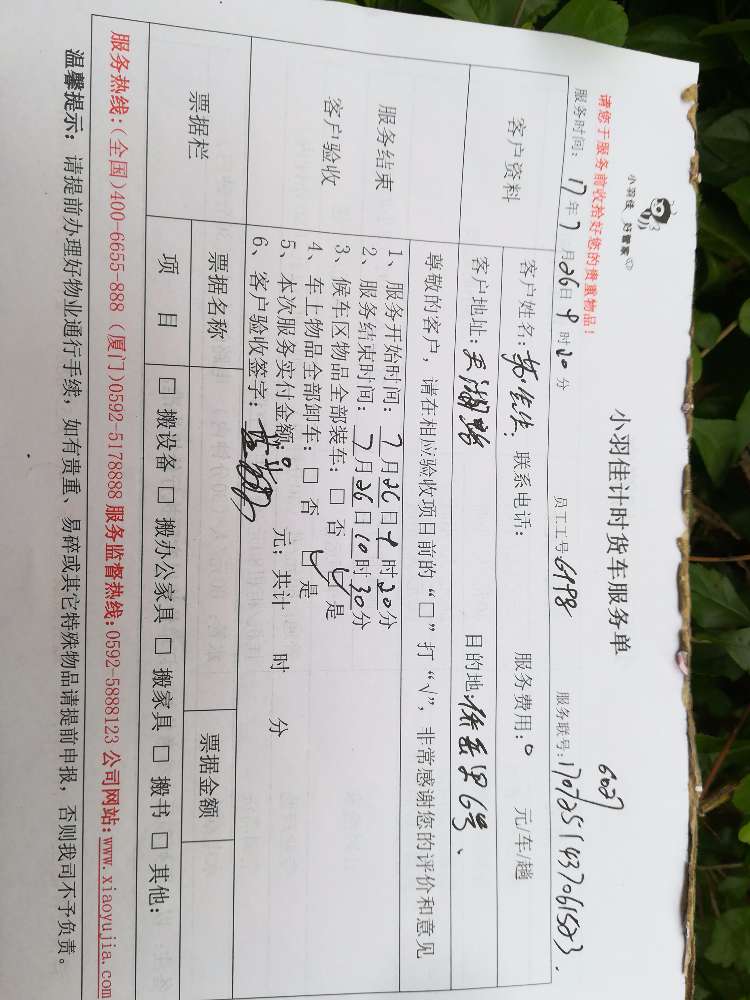 小羽佳 好管家
小羽佳计时货车服务单
请您于服务前收拾好您的贵重物品!
6027
服务时间: 17年7月26日9时20分 员工工号: 6198 服务联号: 1707251437061523.
客户资料
客户姓名: 先生. 联系电话: 服务费用: 0 元/车/趟
客户地址: 湖路 目的地: 6号、
服务结束
客户验收
尊敬的客户,请在相应验收项目前的“□”打“√”,非常感谢您的评价和意见
1、服务开始时间: 7月26日9时20分
2、服务结束时间: 7月26日10时30分
3、候车区物品全部装车: □ 否 □ 是
4、车上物品全部卸车: □ 否 □ 是
5、本次服务实付金额: 0 元; 共计 时 分
6、客户验收签字:
票据栏
票据名称 票据金额
项 目 □ 搬设备 □ 搬办公家具 □ 搬家具 □ 搬书 □ 其他:
服务热线:(全国)400-6655-888 (厦门)0592-5178888 服务监督热线:0592-5888123 公司网站:www.xiaoyujia.com
温馨提示: 请提前办理好物业通行手续,如有贵重、易碎或其它特殊物品请提前申报,否则我司不予负责。